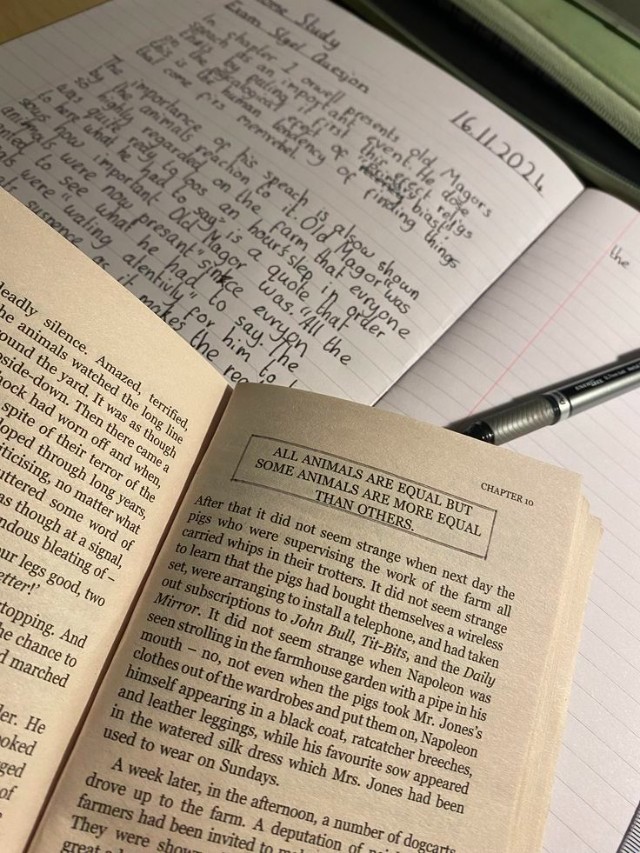 Home Study
Exam Styel Question
16.11.2024
In chapter 1 orwell presents old Magors
speach as an important event. He dose
this by
the
The importance of his speach is allow shown
by the animals reaction to it. Old Magor "was
so highly regarded on the farm that evryone
was quite redy to loos an hours slep in order
to here what he had to say" is a quote that
shows how important Old Magor was. "All the
animals were now present" sinkce evryon
wanted to see what he had to say. The
animals were "waiting alentivly" for him to
as it makes the
the
deadly silence. Amazed, terrified,
the animals watched the long line
round the yard. It was as though
upside-down. Then there came a
shock had worn off and when,
spite of their terror of the
loped through long years,
criticising, no matter what
uttered some word of
as though at a signal,
endous bleating of –
our legs good, two
better!'
stopping. And
the chance to
d marched
ler. He
ooked
ged
of
CHAPTER 10
ALL ANIMALS ARE EQUAL BUT
SOME ANIMALS ARE MORE EQUAL
THAN OTHERS.
After that it did not seem strange when next day the
pigs who were supervising the work of the farm all
carried whips in their trotters. It did not seem strange
to learn that the pigs had bought themselves a wireless
set, were arranging to install a telephone, and had taken
out subscriptions to John Bull, Tit-Bits, and the Daily
Mirror. It did not seem strange when Napoleon was
seen strolling in the farmhouse garden with a pipe in his
mouth – no, not even when the pigs took Mr. Jones's
clothes out of the wardrobes and put them on, Napoleon
himself appearing in a black coat, ratcatcher breeches,
and leather leggings, while his favourite sow appeared
in the watered silk dress which Mrs. Jones had been
used to wear on Sundays.
A week later, in the afternoon, a number of dogcarts
drove up to the farm. A deputation of
farmers had been invited to
They were
great